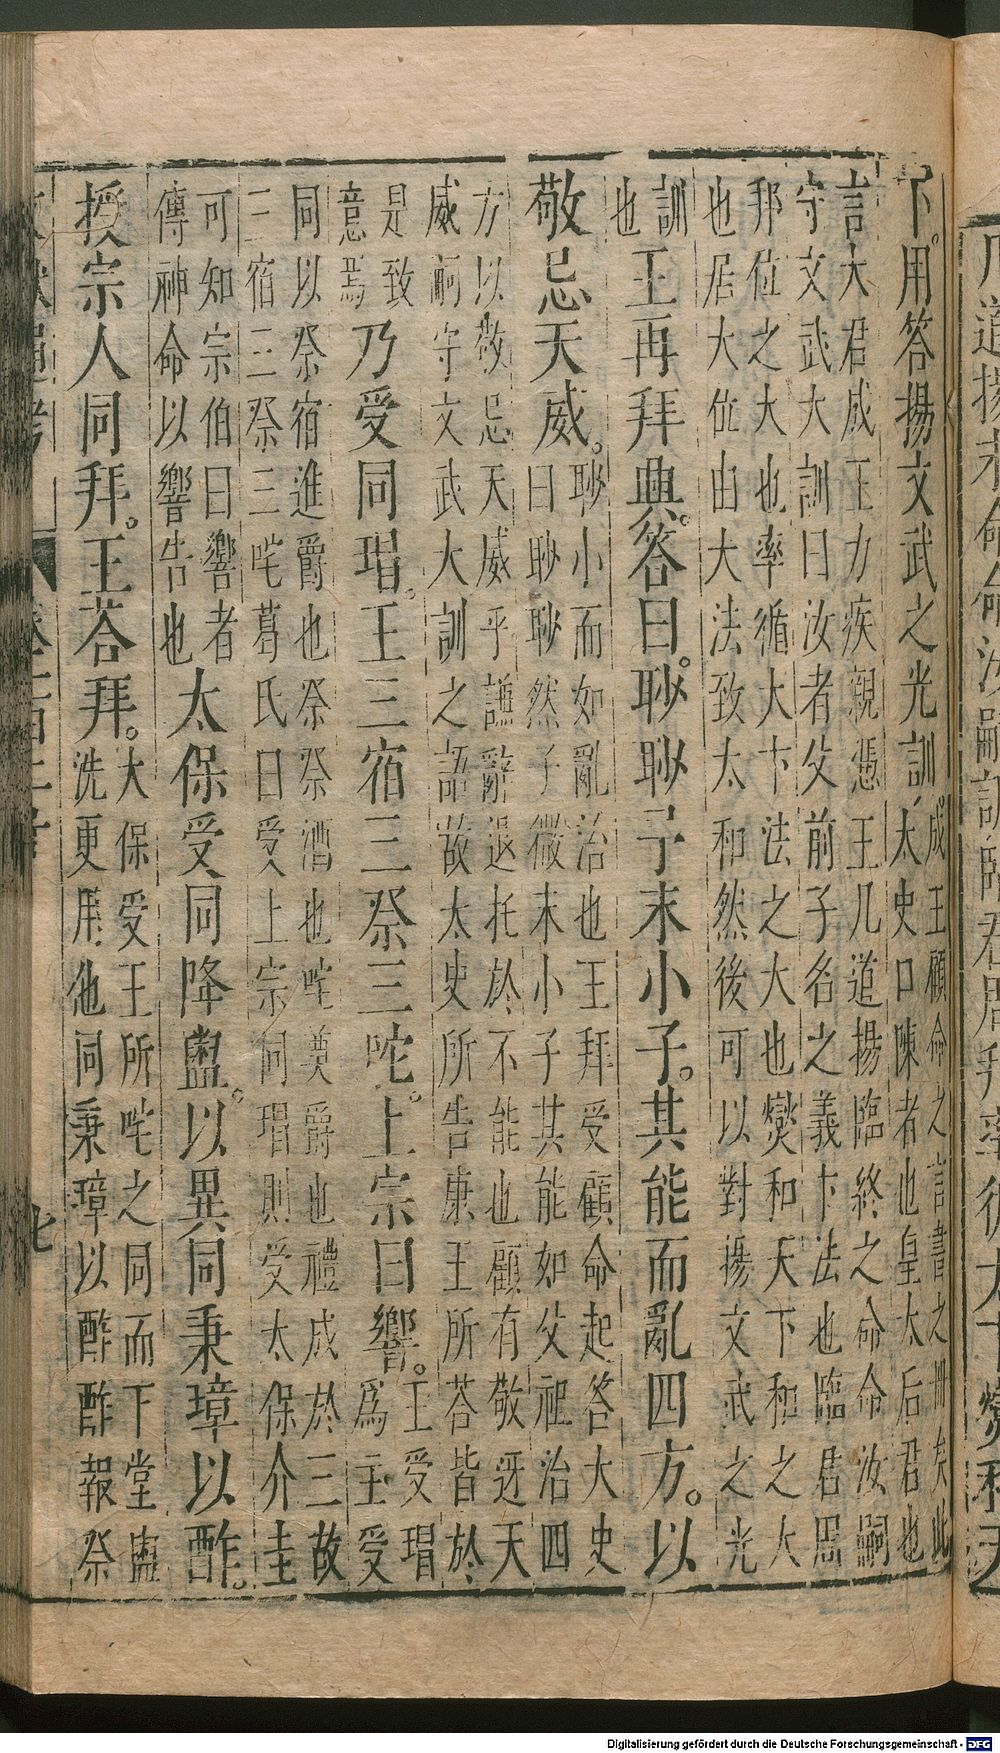 几道揚末命命汝嗣訓臨君周邦率循大卞燮和天
下。用答揚文武之光訓
成王顧命之言書之冊矣此
太史口陳者也皇太后君也
言大君成王力疾親憑王几道揚臨終之命命汝嗣
守文武大訓曰汝者父前子名之義卞法也臨君周
邦位之大也率循大卞法之大也燮和天下和之大
也居大位由大法致太和然後可以對揚文武之光
訓
也
王再拜興答曰。眇眇予末小子。其能而亂四方。以
敬忌天威。
眇小而如亂治也王拜受顧命起答大史
曰眇眇然予微末小子其能如父祖治四
方以敬忌天威乎謙辭退托於不能也顧有敬迓天
威嗣守文武大訓之語故太史所告康王所荅皆於
是致
意焉
乃受同瑁。王三宿三祭三咤。上宗曰饗。
王受瑁
爲主受
同以祭宿進爵也祭祭酒也咤奠爵也禮成於三故
三宿三祭三咤葛氏曰受上宗同瑁則受太保介圭
可知宗伯曰饗者
傳神命以饗告也
太保受同降盥。以異同秉璋以酢。
授宗人同拜。王荅拜。
大保受王所咤之同而下堂盥
洗更用他同秉璋以酢酢報祭
七
Digitalisierung gefördert durch die Deutsche Forschungsgemeinschaft - DFG